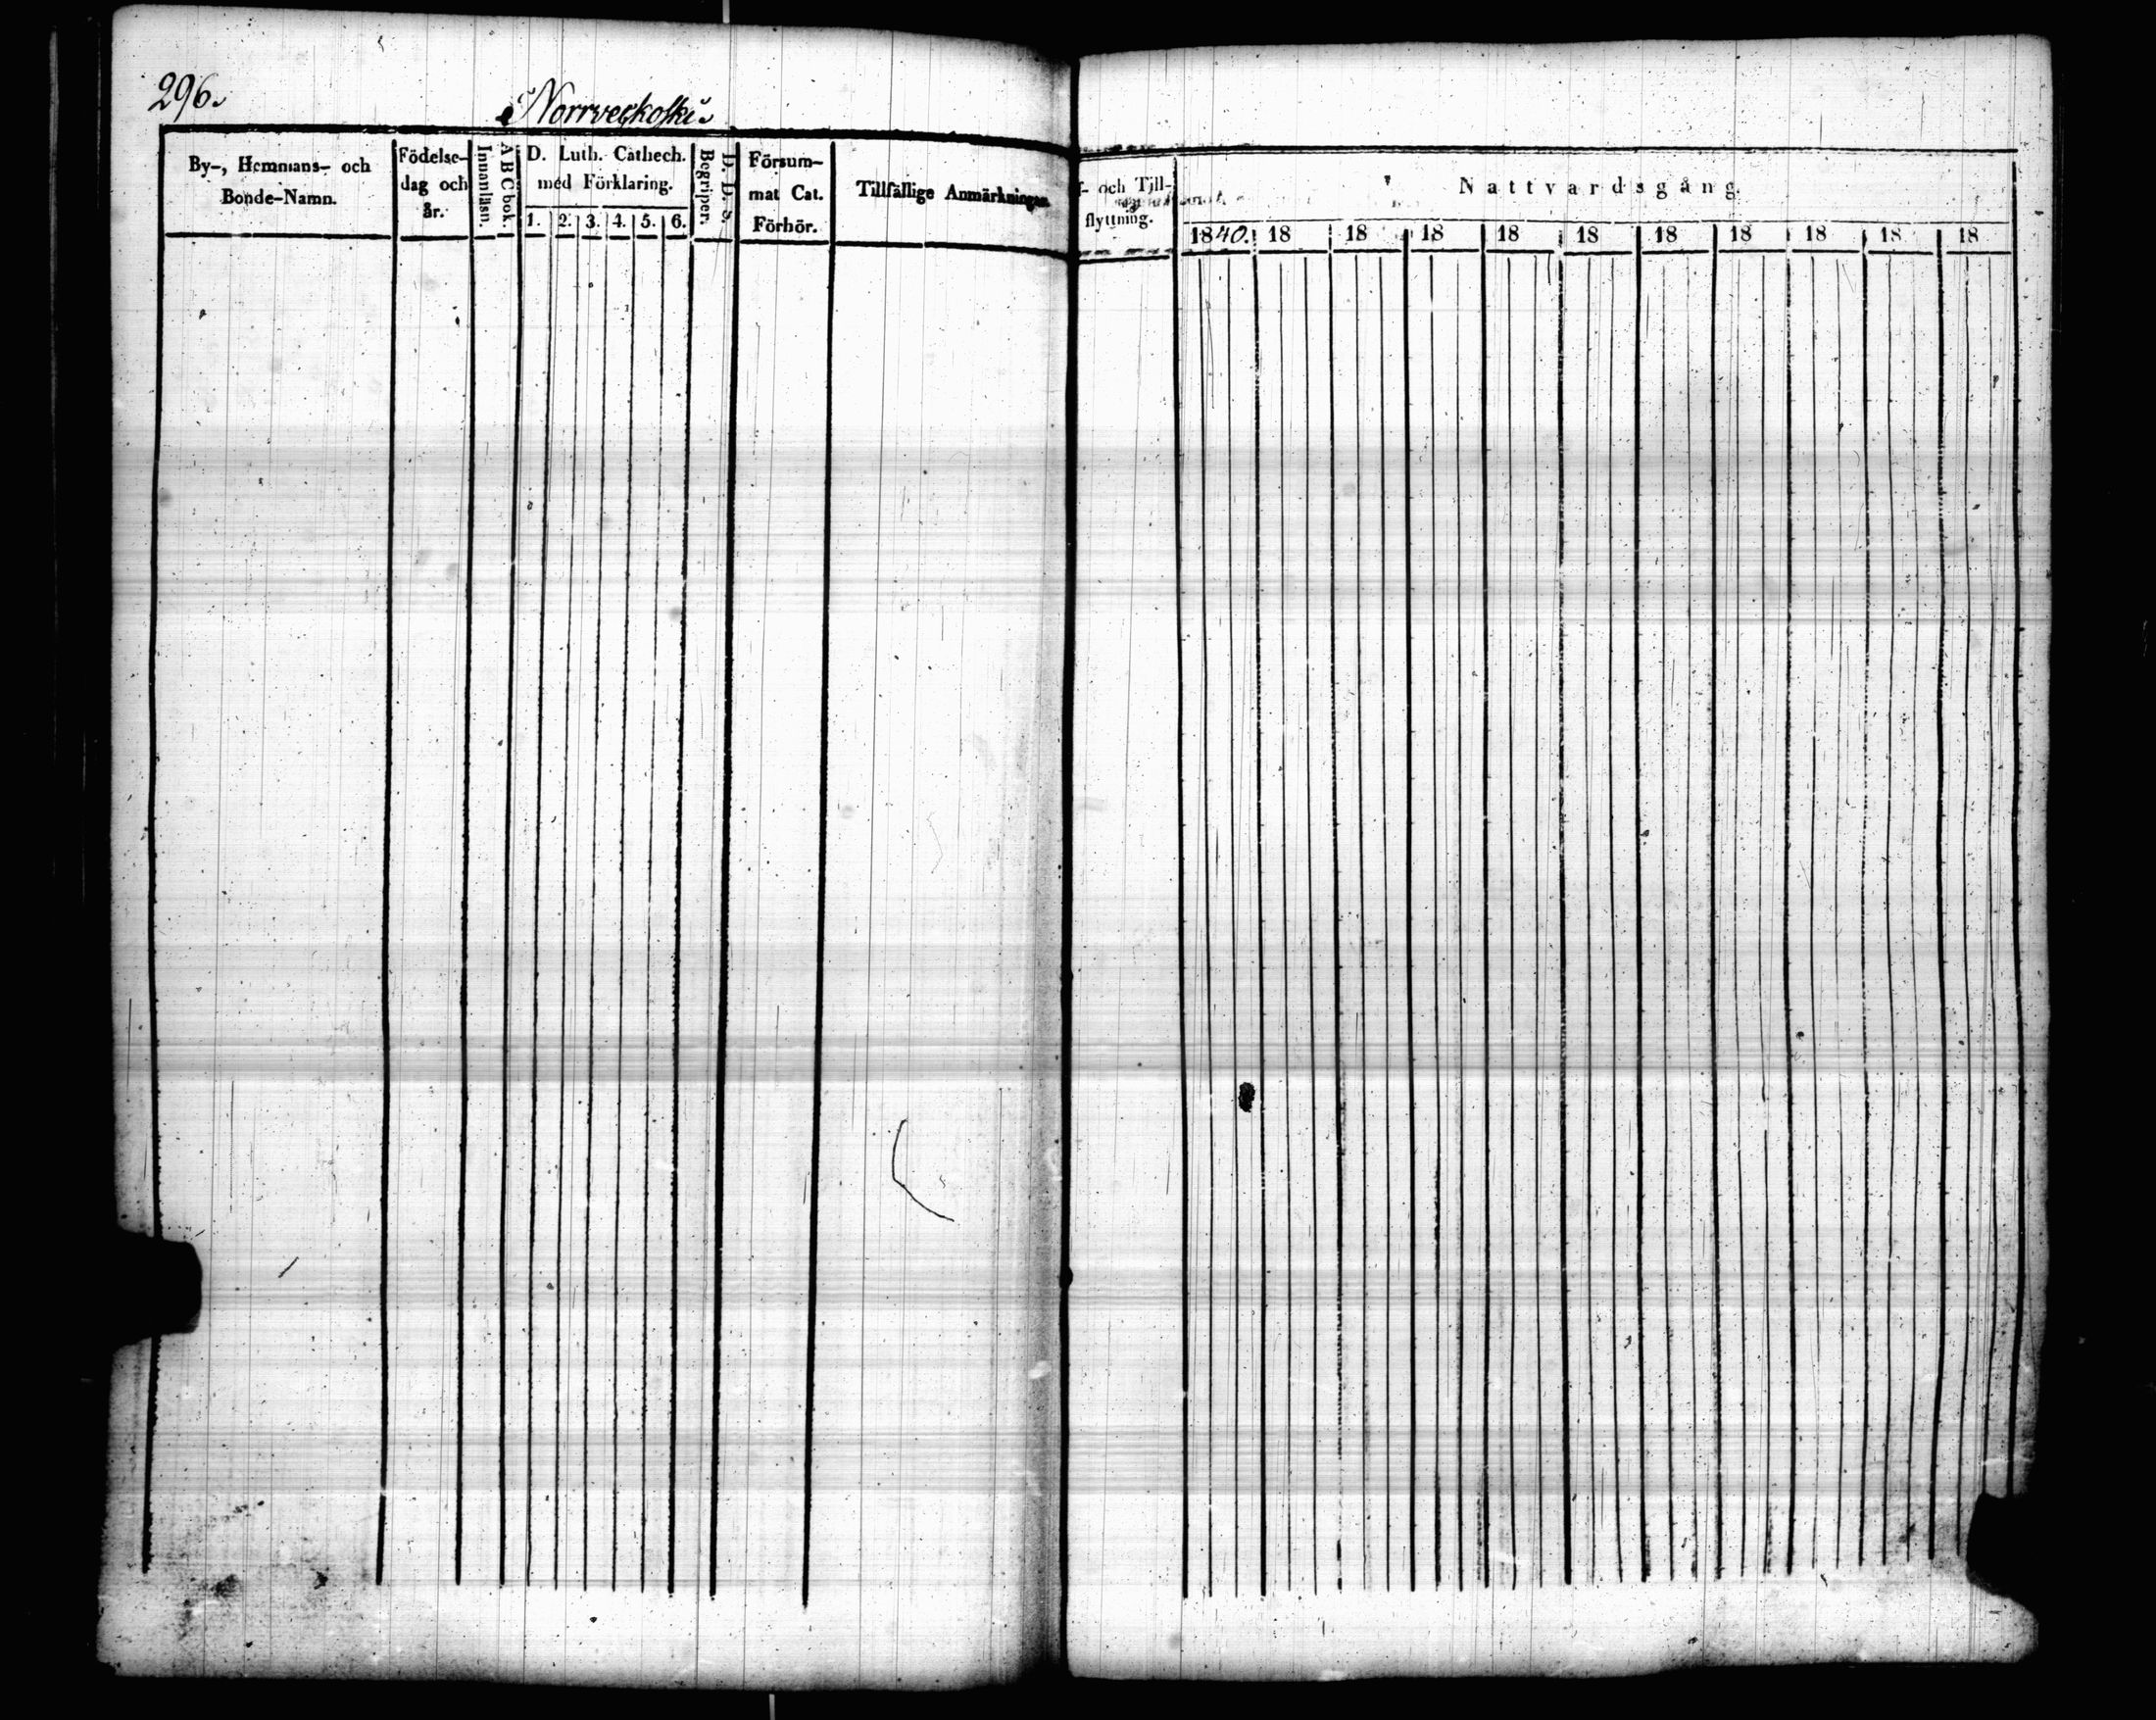 296.
Norrveckoski.
By-, Hemmans- och
Bonde-Namn.
Födelse-
dag och
år.
Innanläsn.
A B C bok.
D. Luth. Cathech.
med Förklaring.
1. 2. 3. 4. 5. 6.
Begriper.
D. D. S.
Försum-
mat Cat.
Förhör.
Tillfällige Anmärkningar.
f- och Till-
flyttning.
Nattvardsgång.
1840. 18 18 18 18 18 18 18 18 18 18